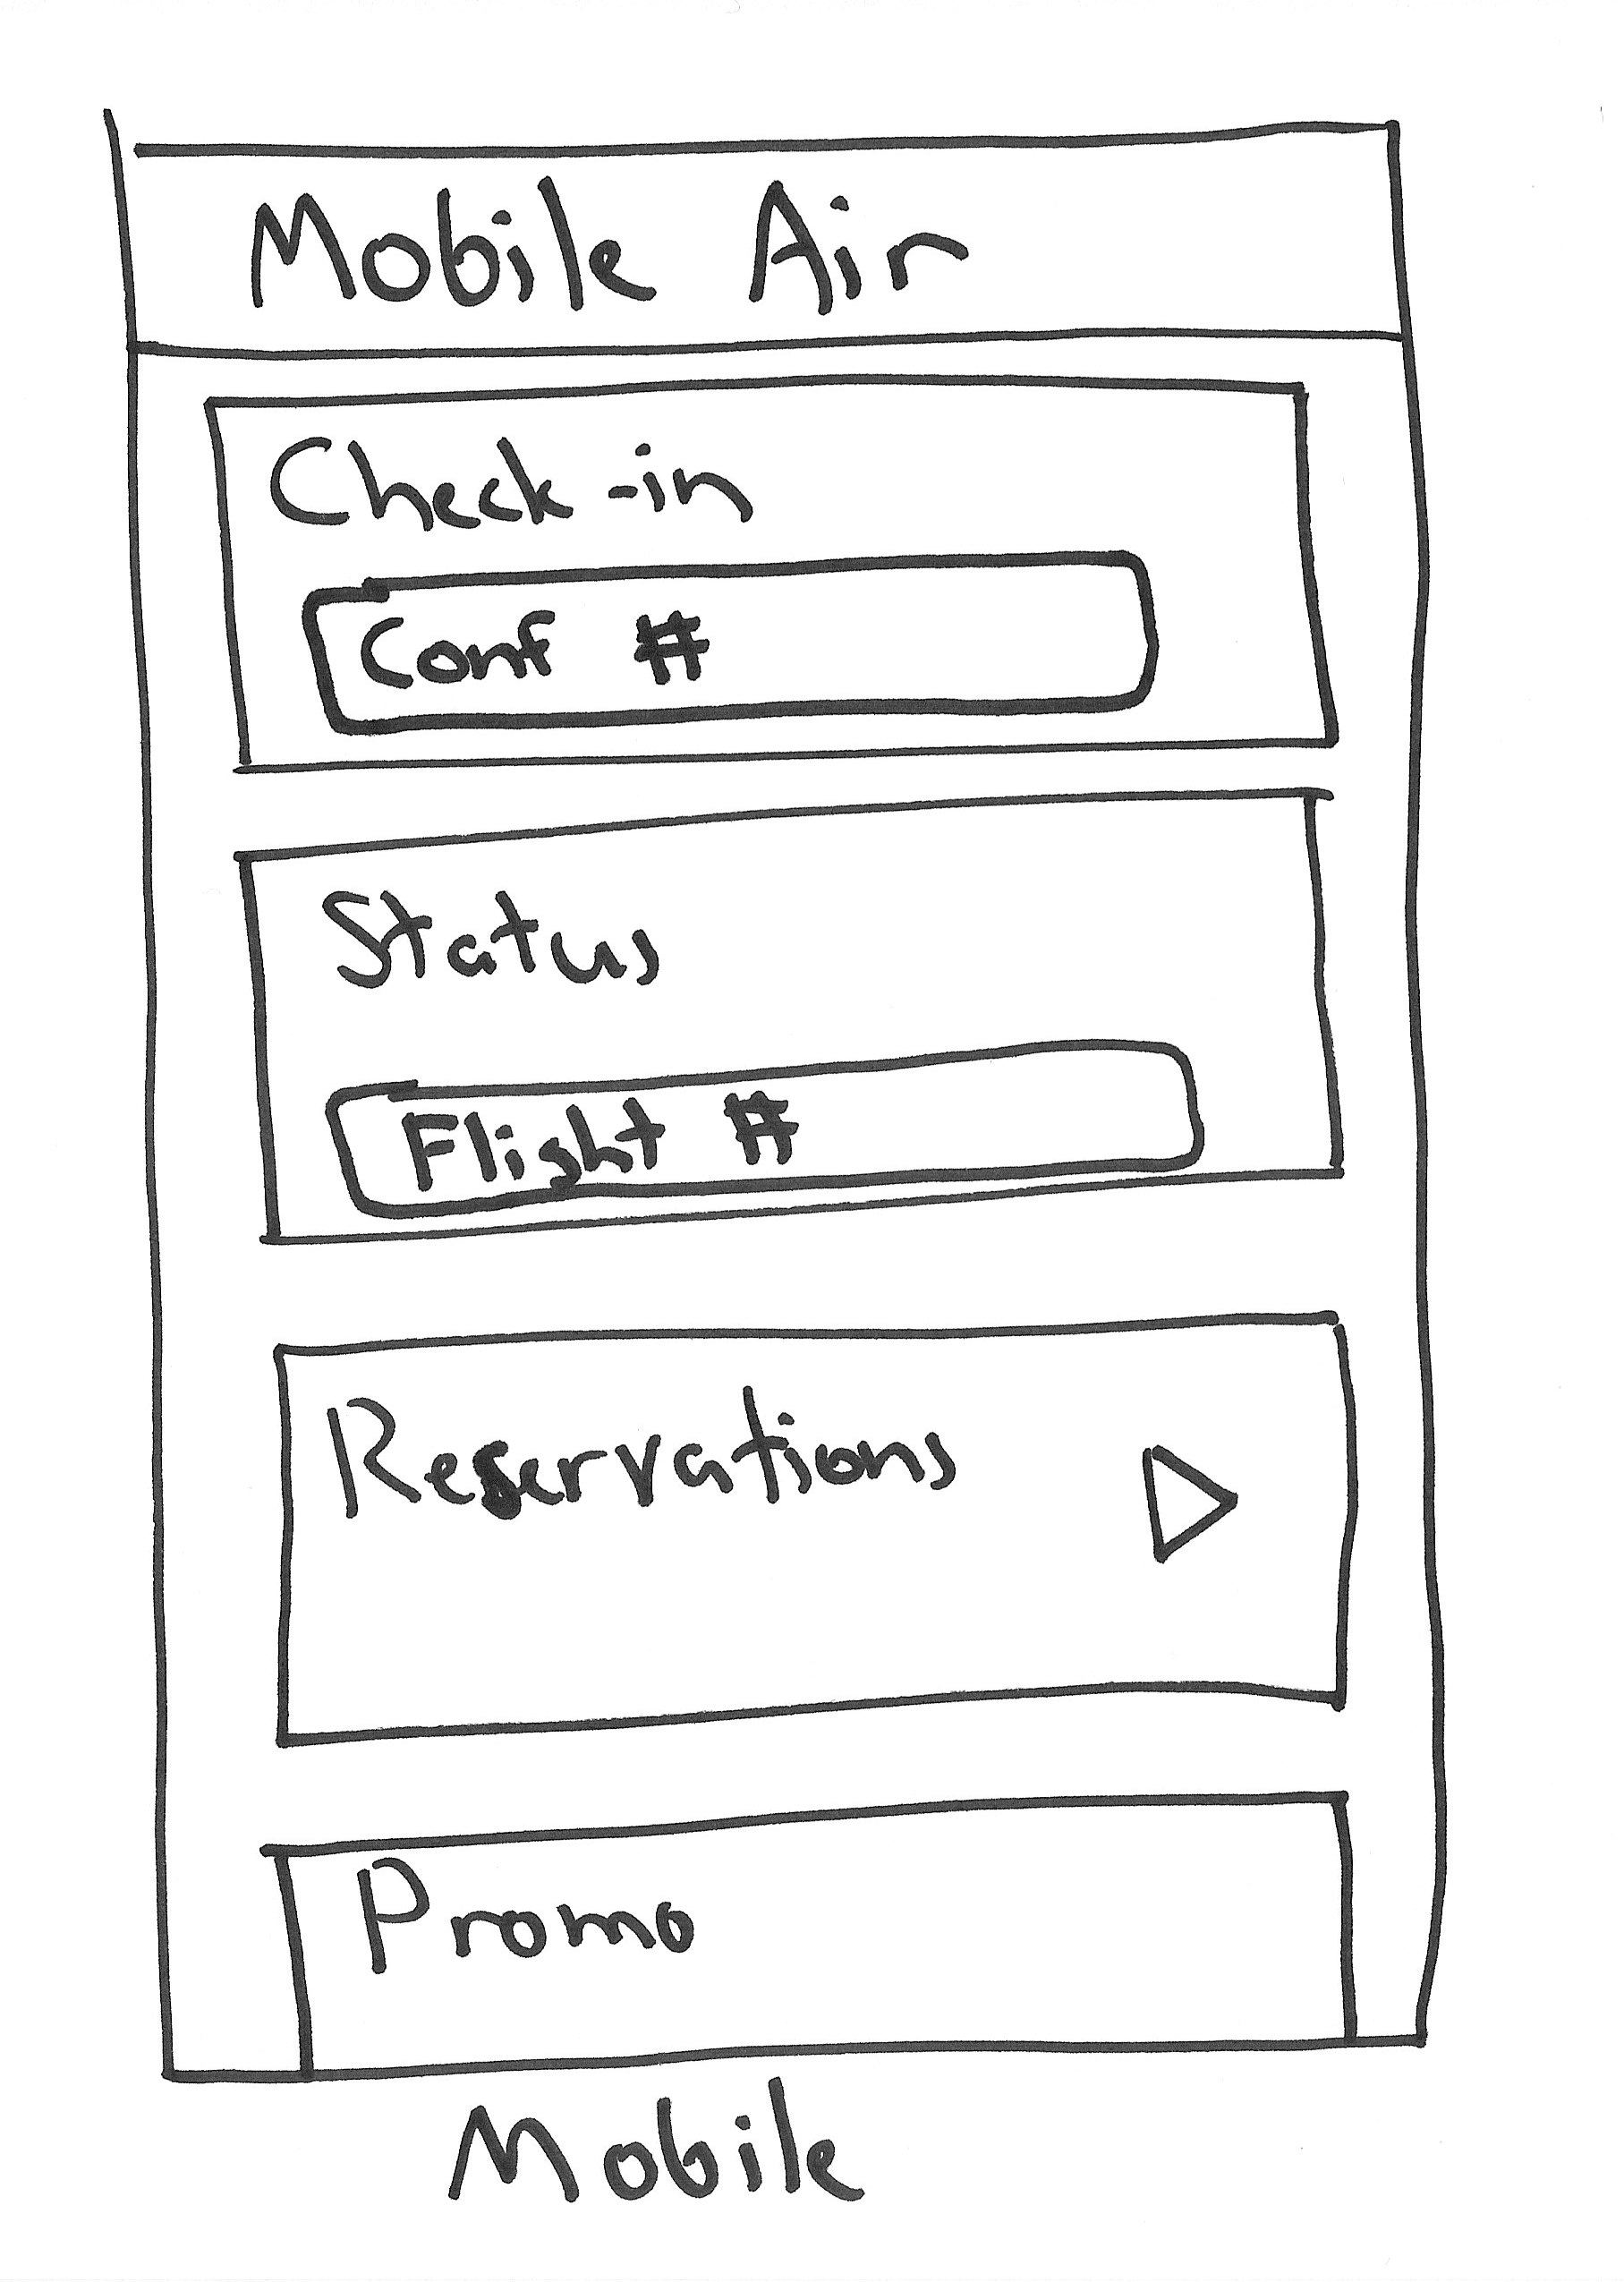 Mobile Air
Check-in
Conf #
Status
Flight #
Reservations
Promo
Mobile